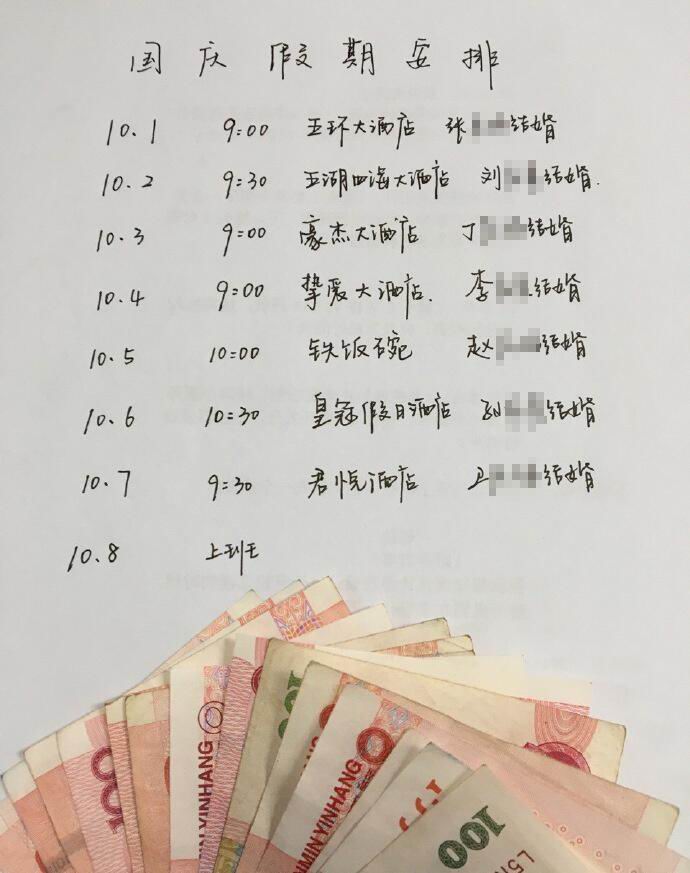 国庆假期安排
10.1 9:00 五环大酒店 张 结婚
10.2 9:30 五湖四海大酒店 刘 结婚.
10.3 9:00 豪杰大酒店 丁 结婚
10.4 9:00 挚爱大酒店. 李 结婚
10.5 10:00 铁饭石宛 赵 结婚
10.6 10:30 皇冠假日酒店 孙 结婚
10.7 9:30 君悦酒店 卫 结婚
10.8 上班
100
MIN YINHANG
100
NMIN YINHANG
100
L5